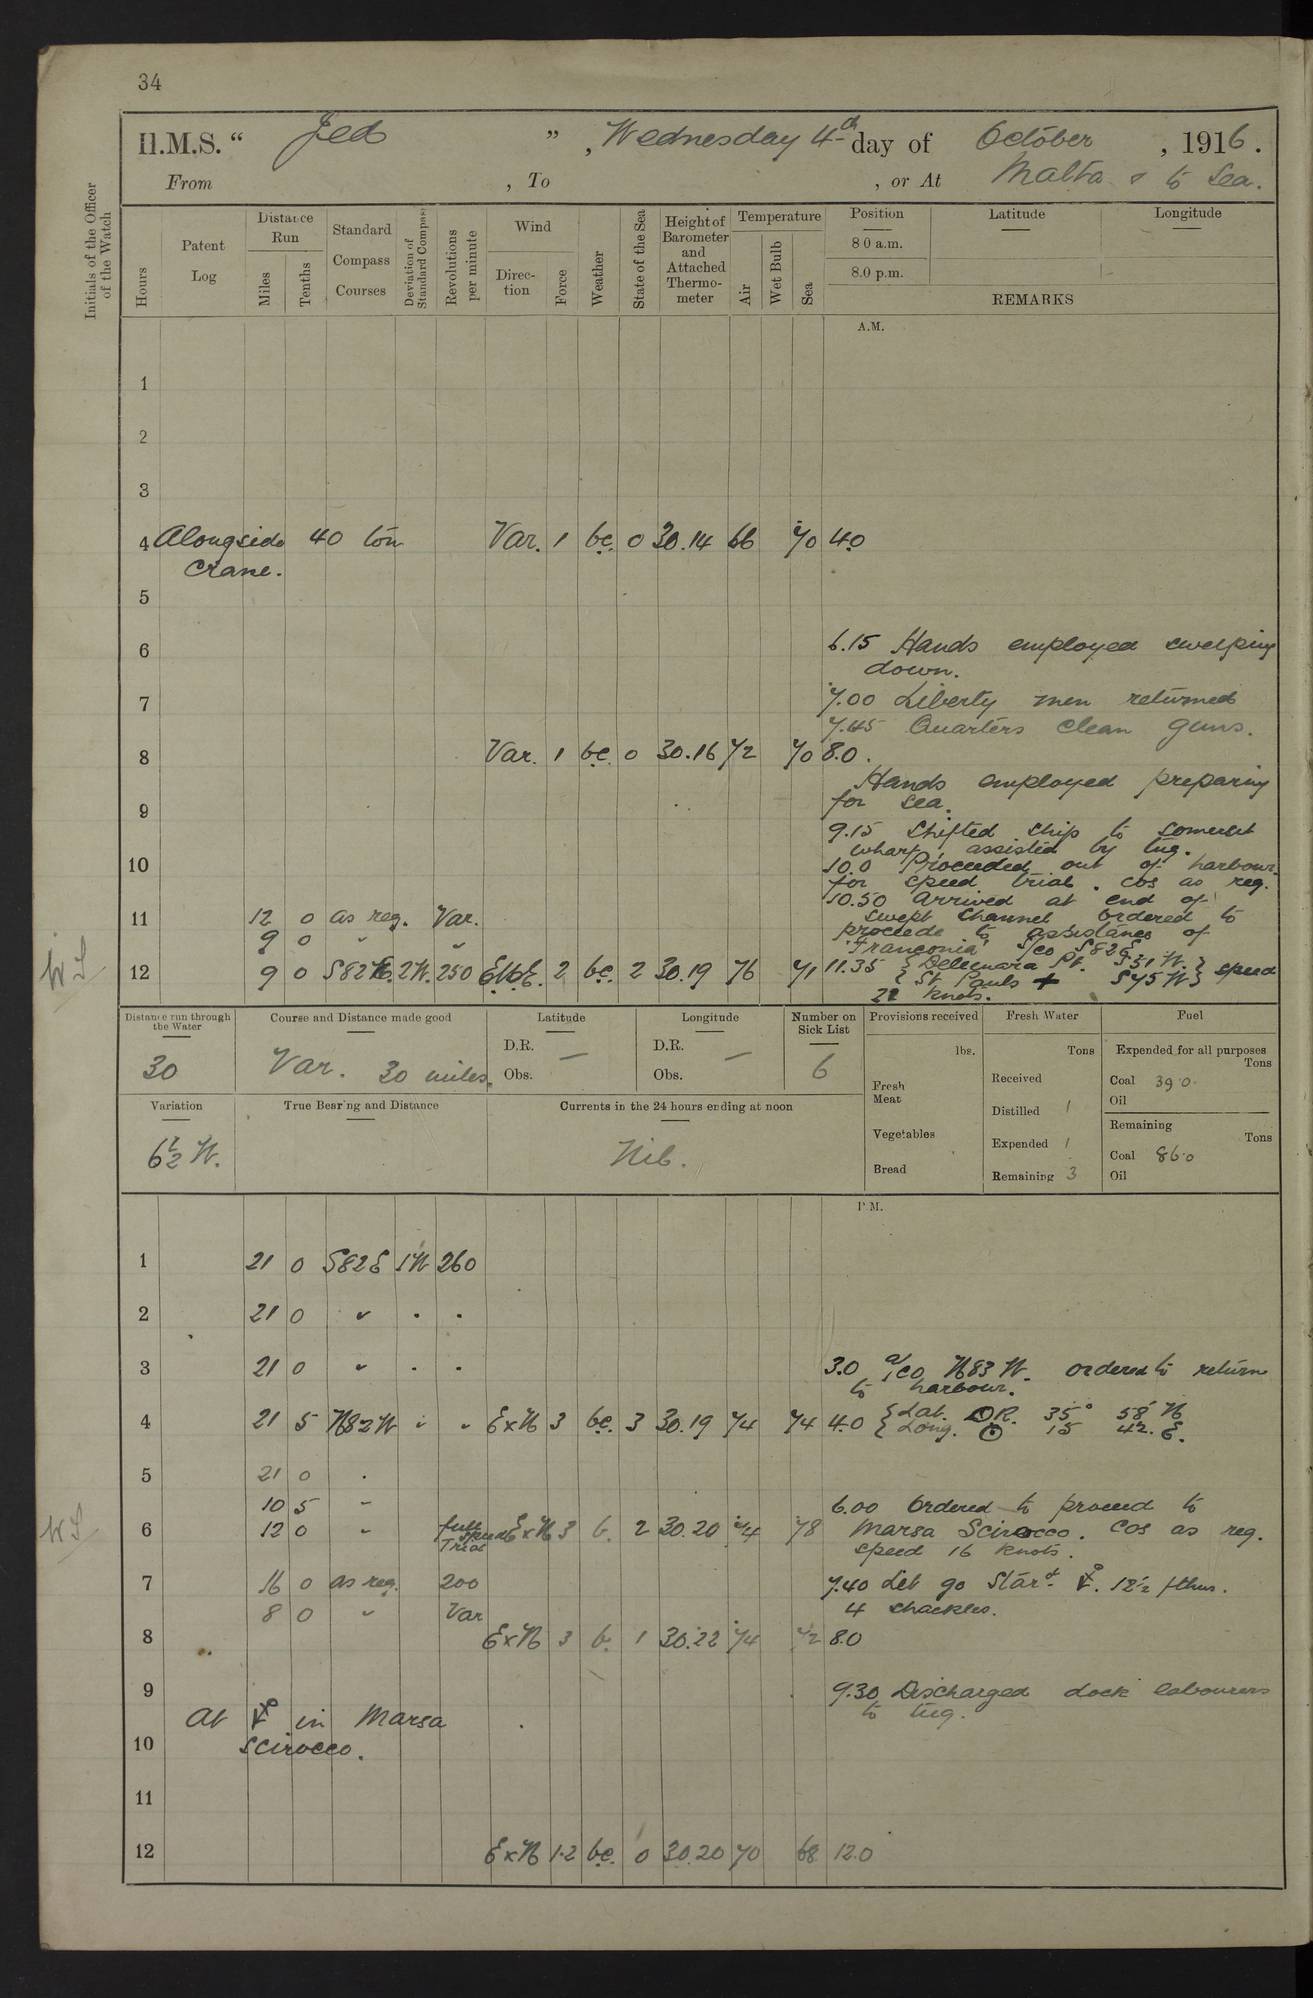 34
H.M.S. “ Jed ” , Wednesday 4th day of October , 1916.
From , To , or At Malta & to Sea.
Initials of the Officer of the Watch
Hours
Patent Log
Distance Run
Miles
Tenths
Standard Compass Courses
Deviation of Standard Compass
Revolutions per minute
Wind
Direction
Force
Weather
State of the Sea
Height of Barometer and Attached Thermometer
Temperature
Air
Wet Bulb
Sea
Position
8 0 a.m.
8.0 p.m.
Latitude
Longitude
REMARKS
A.M.
1
2
3
4 Alongside 40 ton Var. 1 bc. 0 30.14 66 70 4.0
crane.
5
6 6.15 Hands employed sweeping
down.
7 7.00 Liberty men returned
7.45 Quarters clean guns.
8 Var. 1 bc. 0 30.16 72 70 8.0.
Hands employed preparing
9 for sea.
9.15 Shifted ship to Somerset
wharf, assisted by tug.
10 10.0 Proceeded out of harbour
for speed trial. Cos as reg.
10.50 Arrived at end of
11 12 0 as reg. Var. swept channel ordered to
9 0 " " proceede to assistance of
'Franconia' S/co S82E
W S
12 9 0 S82E. 2W. 250 EbE. 2 bc. 2 30.19 76 71 11.35 { Delimara Pt. S31 W. } speed
{ St. Pauls + S75 W }
22 knots.
Distance run through the Water
30
Course and Distance made good
Var. 30 miles.
Latitude
D.R. —
Obs.
Longitude
D.R. —
Obs.
Number on Sick List
6
Provisions received
lbs.
Fresh Meat
Vegetables
Bread
Fresh Water
Tons
Received
Distilled 1
Expended 1
Remaining 3
Fuel
Expended for all purposes
Tons
Coal 39.0.
Oil
Remaining
Tons
Coal 86.0
Oil
Variation
6½ W.
True Bearing and Distance
Currents in the 24 hours ending at noon
Nil.
P.M.
1 21 0 S82E 1W 260
2 21 0 " " "
3 21 0 " " " 3.0 a/co N83 W. ordered to return
to harbour.
4 21 5 N82W " " ExN 3 bc. 3 30.19 74 74 4.0 { Lat. DR. 35° 58' N
{ Long. 15 42. E.
5 21 0 "
10 5 " 6.00 Ordered to proceed to
W S
6 12 0 " full speed Trial ExN 3 b. 2 30.20 74 78 Marsa Scirocco. Cos as reg.
speed 16 knots.
7 16 0 as reg. 200 7.40 Let go Starb. ⚓. 12½ fthms.
8 0 " Var 4 shackles.
8 ExN 3 b. 1 30.22 74 72 8.0
9 9.30 Discharged dock labourers
At ⚓ in Marsa to tug.
10 Scirocco.
11
12 ExN 1.2 bc. 0 30.20 70 68 12.0